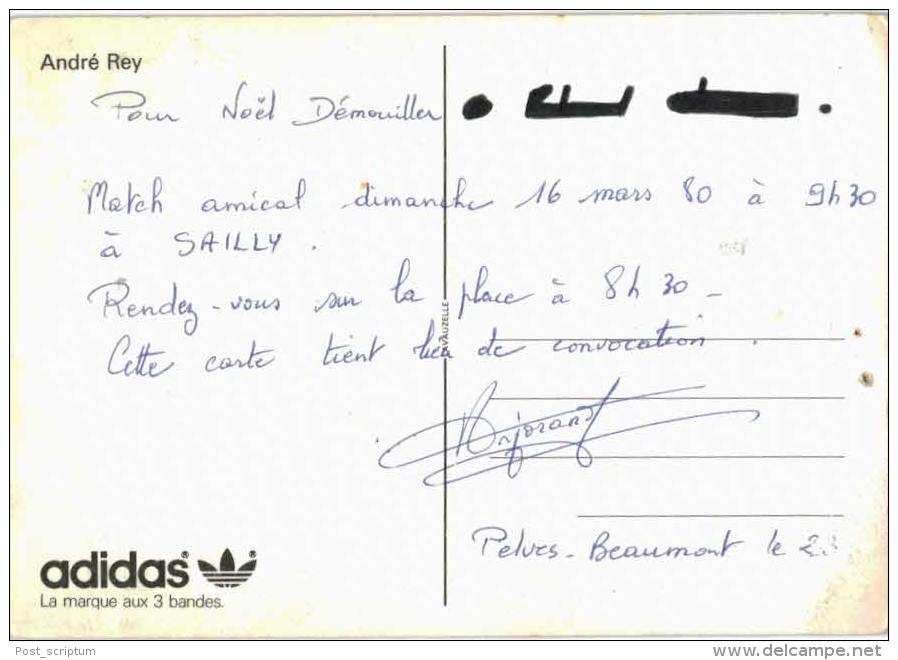 André Rey
Pour Noël Démouiller
Match amical dimanche 16 mars 80 à 9h30
à SAILLY.
Rendez-vous sur la place à 8h30 -
Cette carte tient lieu de convocation.
Pelves-Beaumont le
adidas
La marque aux 3 bandes.
Post_scriptum
www.delcampe.net